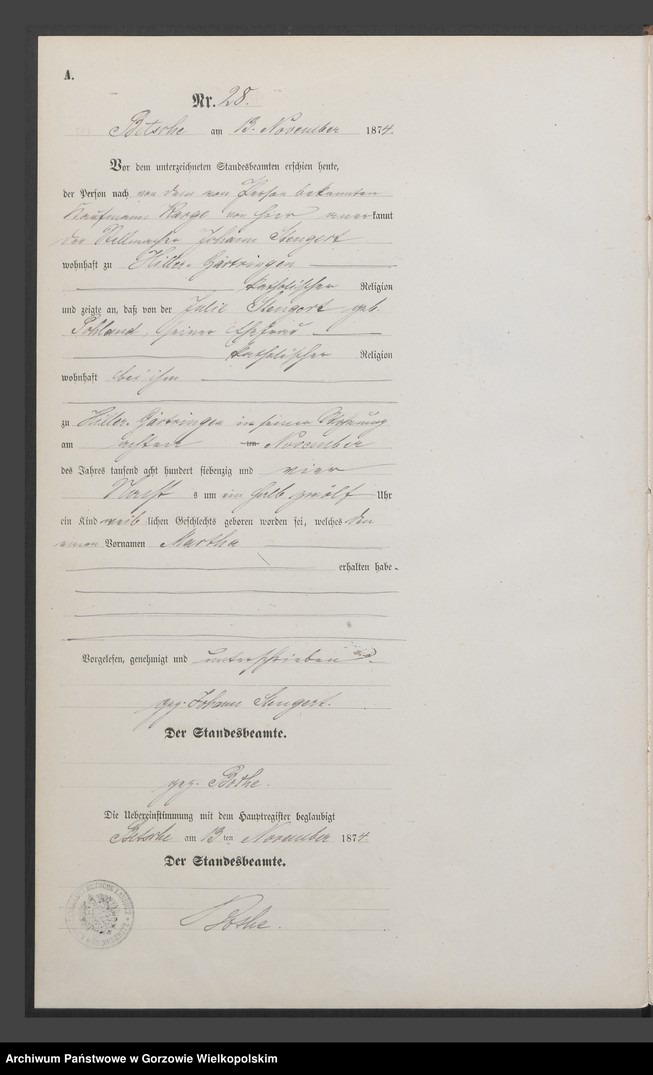 A.
Nr. 28.
Betsche am 13. November 1874.
Vor dem unterzeichneten Standesbeamten erschien heute,
der Person nach von dem von Person bekannten
Kaufmann Karge von hier anerkannt
der Stellmacher Johann Stengert
wohnhaft zu Hiller-Gärtringen
katholischer Religion
und zeigte an, daß von der Julie Stengert geb.
Pohland, seiner Ehefrau
katholischer Religion
wohnhaft bei ihm
zu Hiller-Gärtringen in seiner Wohnung
am achten November
des Jahres tausend acht hundert siebenzig und vier
Nachts um ein halb zwölf Uhr
ein Kind weiblichen Geschlechts geboren worden sei, welches den
einen Vornamen Martha
erhalten habe.
Vorgelesen, genehmigt und unterschrieben
gez. Johann Stengert.
Der Standesbeamte.
gez. Bothe.
Die Uebereinstimmung mit dem Hauptregister beglaubigt
Betsche am 13ten November 1874.
Der Standesbeamte.
Bothe.
Archiwum Państwowe w Gorzowie Wielkopolskim